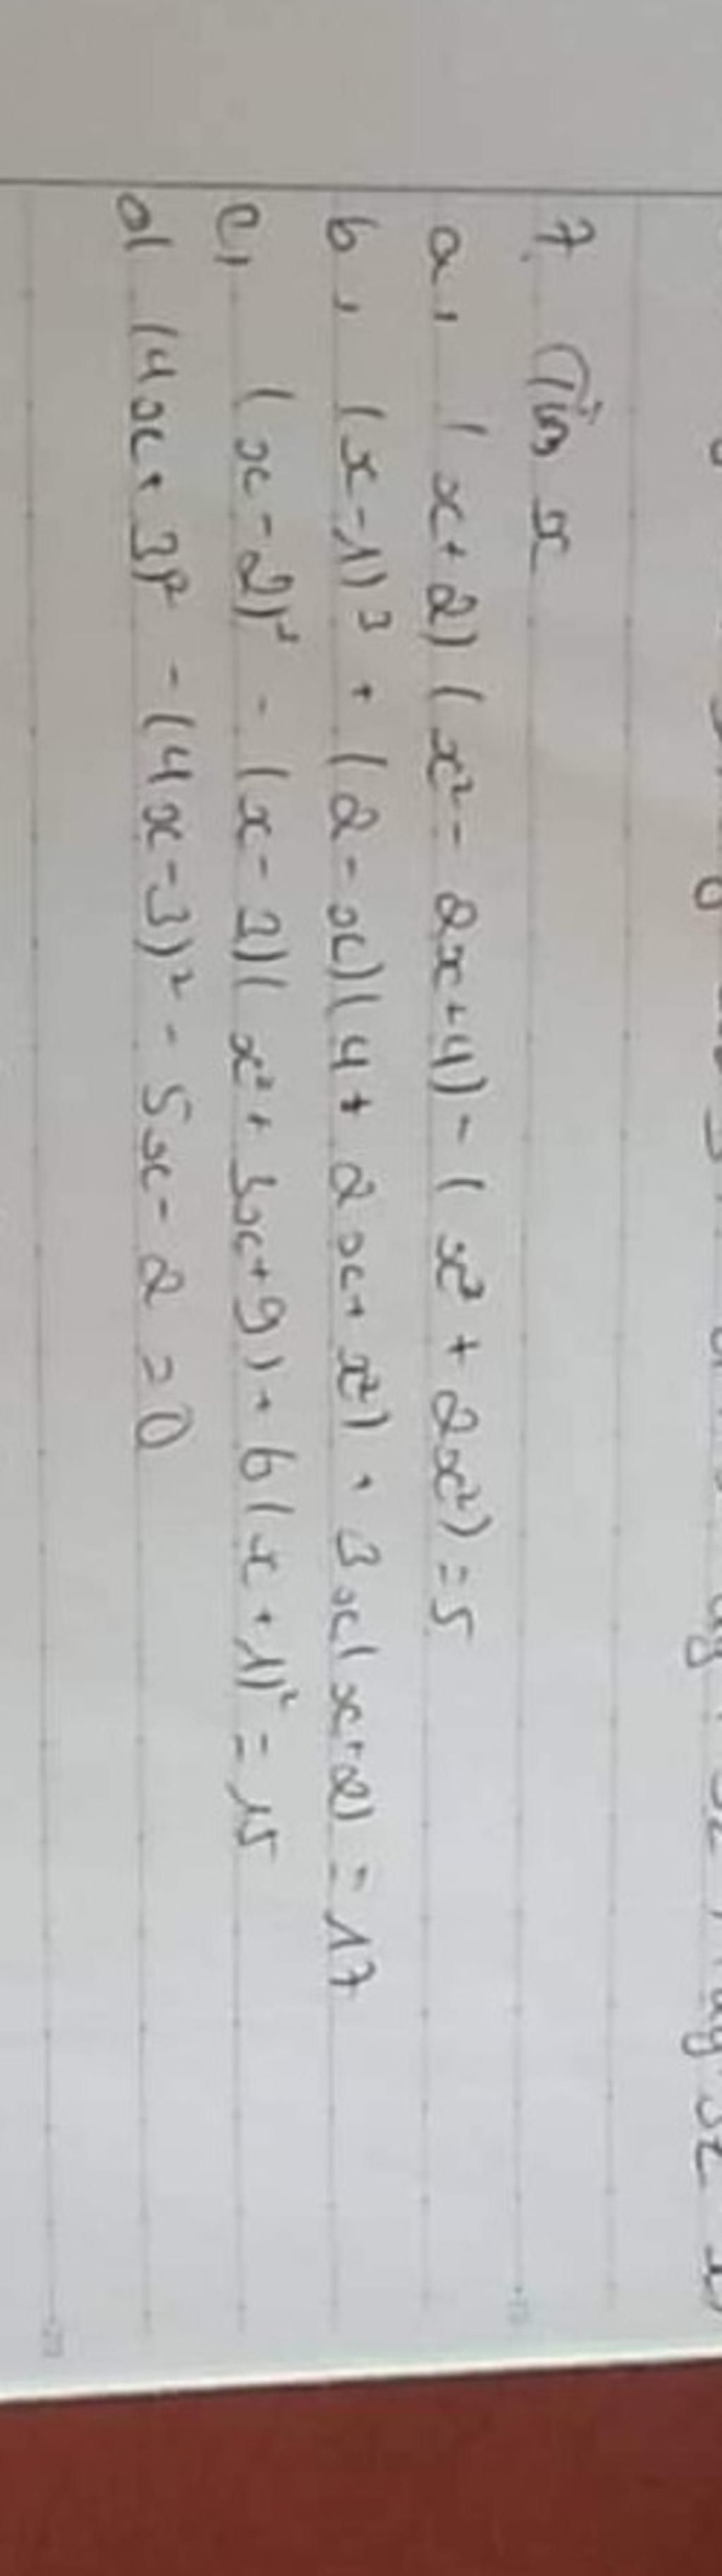 7. Tìm x
a, (x+2)(x²-2x+4)-(x³+2x²)=5
b, (x-1)³+(2-x)(4+2x+x²)+3x(x+2)=17
c, (x-2)³-(x-3)(x²+3x+9)+6(x+1)²=15
d (4x+3)²-(4x-3)²-5x-2=0